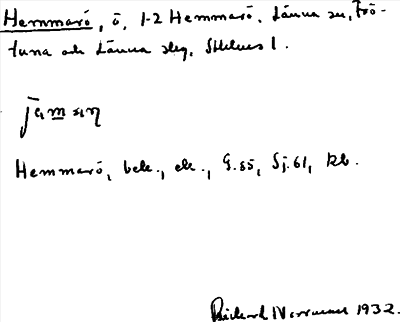 Hemmarö, ö, 1-2 Hemmarö, Länna sn, Frö-
tuna och Länna slg, Sthlms l.
Hemmarö, bek., ek., G.55, Sj.61, kb.
Rickard Norrman 1932.